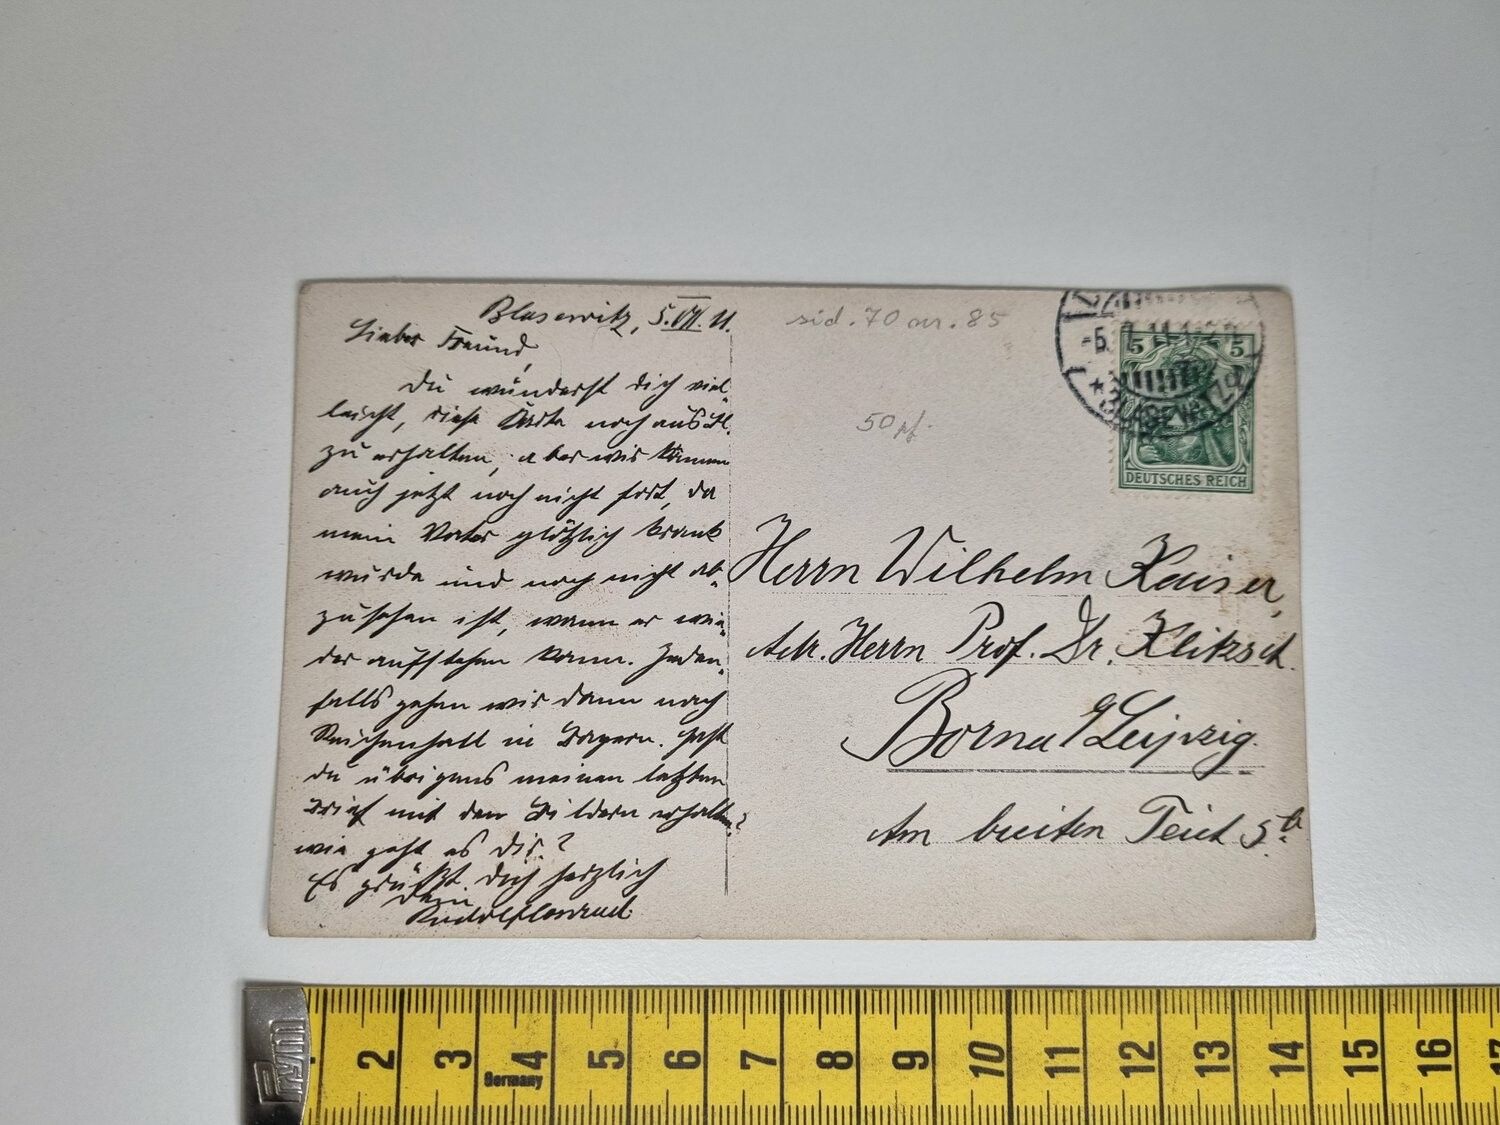 Blasewitz, 5. VII. 11.
Lieber Freund,
Du wunderst dich viel-
leicht, diese Karte noch aus Bl.
zu erhalten, aber wir können
auch jetzt noch nicht fort, da
mein Vater plötzlich krank
wurde und noch nicht ab-
zusehen ist, wann er wie-
der aufstehen kann. Jeden-
falls gehen wir dann nach
Reichenhall in Bayern. Hast
du übrigens meinen letzten
Brief mit den Bildern erhalten?
wie geht es dir?
Es grüßt dich herzlich
dein
Rudolf Conrad.
sid. 70 nr. 85
50 pf.
BLASEWITZ
5 5
DEUTSCHES REICH
Herrn Wilhelm Kaiser,
Adr. Herrn Prof. Dr. Klitzsch.
Borna b/Leipzig.
Am breiten Teich 5b.
2 3 4 5 6 7 8 9 10 11 12 13 14 15 16 17
Germany